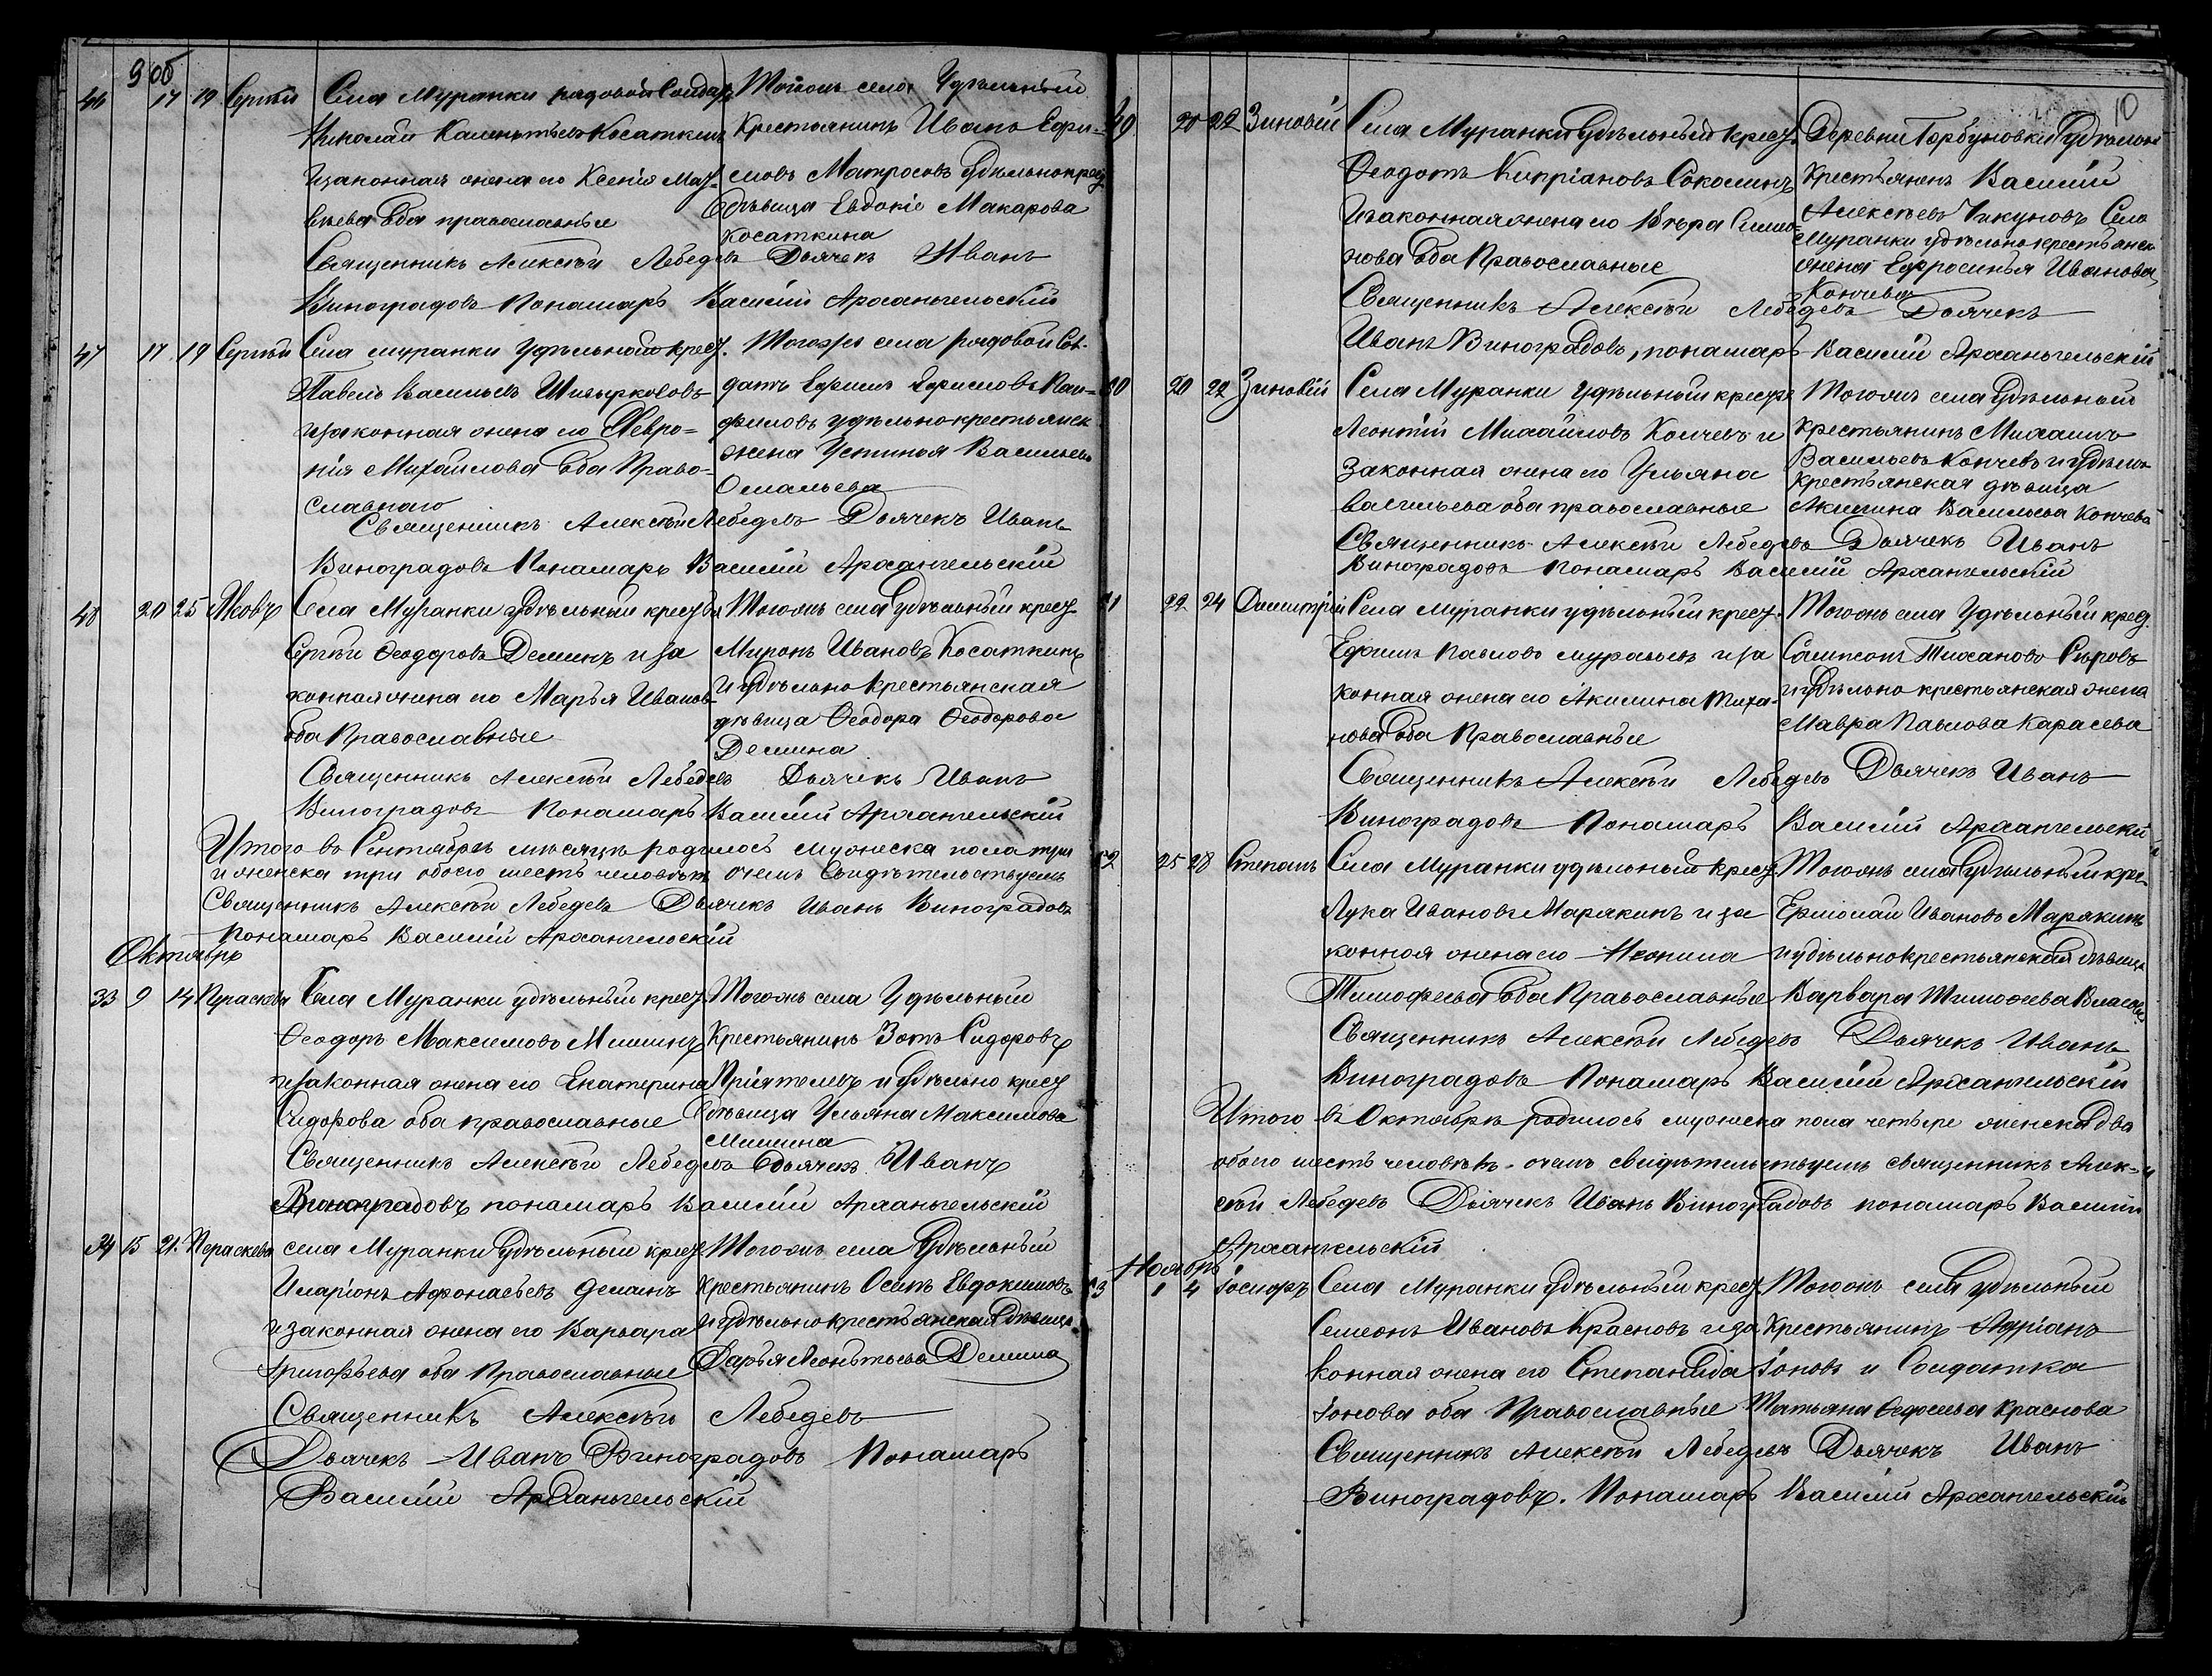 9 об
46 17 19 Сергѣй Села Муранки рядовой Солдатъ Тогожъ села Удѣльный
Николай Калистратовъ Косаткинъ Крестьянинъ Иванъ Ефи-
и законная жена его Ксенія Мат- мовъ Матросовъ Удѣльнокрест
вѣева оба православные дѣвица Евдокіе Макарова
Косаткина
Священникъ Алексѣй Лебедевъ Дьячекъ Иванъ
Виноградовъ Пономарь Василій Архангельскій
47 17 19 Сергѣй Села муранки Удѣльнаго крест. Тогоже села рядовой Сол-
Павелъ Васильевъ датъ Ефимъ Ефимовъ Пан-
и законная жена его Февро- филовъ удѣльнокрестьянск
нія Михайлова оба Право- жена Устинья Васильева
славнаго
Священникъ Алексѣй Лебедевъ Дьячекъ Иванъ
Виноградовъ Пономарь Василій Архангельскій
48 20 25 Яковъ Села Муранки удѣльный крест Тогожъ села удѣльный крест
Сергѣй Ѳеодоровъ Деминъ и за Миронъ Ивановъ Косаткинъ
конная жена его Марья Иванов и удѣльно крестьянская
оба Православные дѣвица Ѳеодора Ѳеодорова
Демина
Священникъ Алексѣй Лебедевъ Дьячекъ Иванъ
Виноградовъ Пономарь Василій Архангельскій
Итого въ Сентябрѣ мѣсяцѣ родилось мужеска пола три
и женска три обоего шесть человѣкъ очемъ Свидѣтельствуемъ
Священникъ Алексѣй Лебедевъ Дьячекъ Иванъ Виноградовъ
Пономарь Василій Архангельскій
Октябрь
33 9 14 Параскева Села Муранки удѣльный крест. Тогожъ села Удѣльный
Ѳеодоръ Максимовъ Мишинъ Крестьянинъ Зотъ Сидоровъ
и законная жена его Екатерина Пріятелевъ и Удѣльно крест
Сидорова оба православные дѣвица Ульяна Максимова
Мишина
Священникъ Алексѣй Лебедевъ Дьячекъ Иванъ
Виноградовъ пономарь Василій Архангельскій
34 15 21. Параскева села Муранки Удѣльный крест Тогожъ села Удѣльный
Иларіонъ Афонасьевъ Деминъ Крестьянинъ Осипъ Евдокимовъ
и законная жена его Варвара и удѣльнокрестьянская дѣвица
Григорьева оба Православные Дарья Леонтьева Демина
Священникъ Алексѣй Лебедевъ
Дьячекъ Иванъ Виноградовъ Пономарь
Василій Архангельскій
10
49 20 22 Зиновій Села Муранки Удѣльный крест. Деревни Горбуновки Удѣльн
Ѳеодотъ Кипріановъ Соколинъ Крестьяненъ Василій
И законная жена его Вѣра Симео- Алексѣевъ Чикуновъ Села
нова оба Православные Муранки удѣльнокрестьянск
жена Ефросинья Иванова
Кончева
Священникъ Алексѣй Лебедевъ Дьячекъ
Иванъ Виноградовъ, пономарь Василій Архангельскій
50 20 22 Зиновій Села Муранки Удѣльный крест Тогожъ села Удѣльный
Леонтій Михайловъ Кончевъ и Крестьянинъ Михаилъ
законная жена его Ульяна Васильевъ Кончевъ и удѣльн
васильева оба православные крестьянская дѣвица
Акилина Васильева Кончева
Священникъ Алексѣй Лебедевъ Дьячекъ Иванъ
Виноградовъ Пономарь Василій Архангельскій
51 22 24 Димитрій Села муранки удѣльный крест. Тогожъ села Удѣльный крест.
Ефимъ Павловъ муравьевъ и за Самсонъ Тихановъ Сѣровъ
конная жена его Акилина Тиха- и удѣльно крестьянская жена
нова оба Православные Мавра Павлова Карасева
Священникъ Алексѣй Лебедевъ Дьячекъ Иванъ
Виноградовъ Пономарь Василій Архангельскій
52 25 28 Степанъ Села Муранки удѣльный крест Тогожъ села Удѣльный крес-
Лука Ивановъ Марякинъ и за Ермолай Ивановъ Марякинъ
конная жена его Неонила и удѣльнокрестьянская дѣвица
Тимофеева оба Православные Варвара Тимофеева Власова
Священникъ Алексѣй Лебедевъ Дьячекъ Иванъ
Виноградовъ Пономарь Василій Архангельскій
Итого въ Октябрѣ родилось мужеска пола четыре женска два
обоего шесть человѣкъ. очемъ свидѣтельствуемъ священникъ Алек-
сѣй Лебедевъ Дьячекъ Иванъ Виноградовъ пономарь Василій
Архангельскій
Ноябрь
53 1 4 Села Муранки Удѣльный крест. Тогожъ села удѣльный
Симеонъ Ивановъ Красновъ и за Крестьянинъ Адріанъ
конная жена его Степанида Іоновъ и Солдатка
Іонова оба Православные Татьяна Ѳедосѣева Краснова
Священникъ Алексѣй Лебедевъ Дьячекъ Иванъ
Виноградовъ. Пономарь Василій Архангельскій